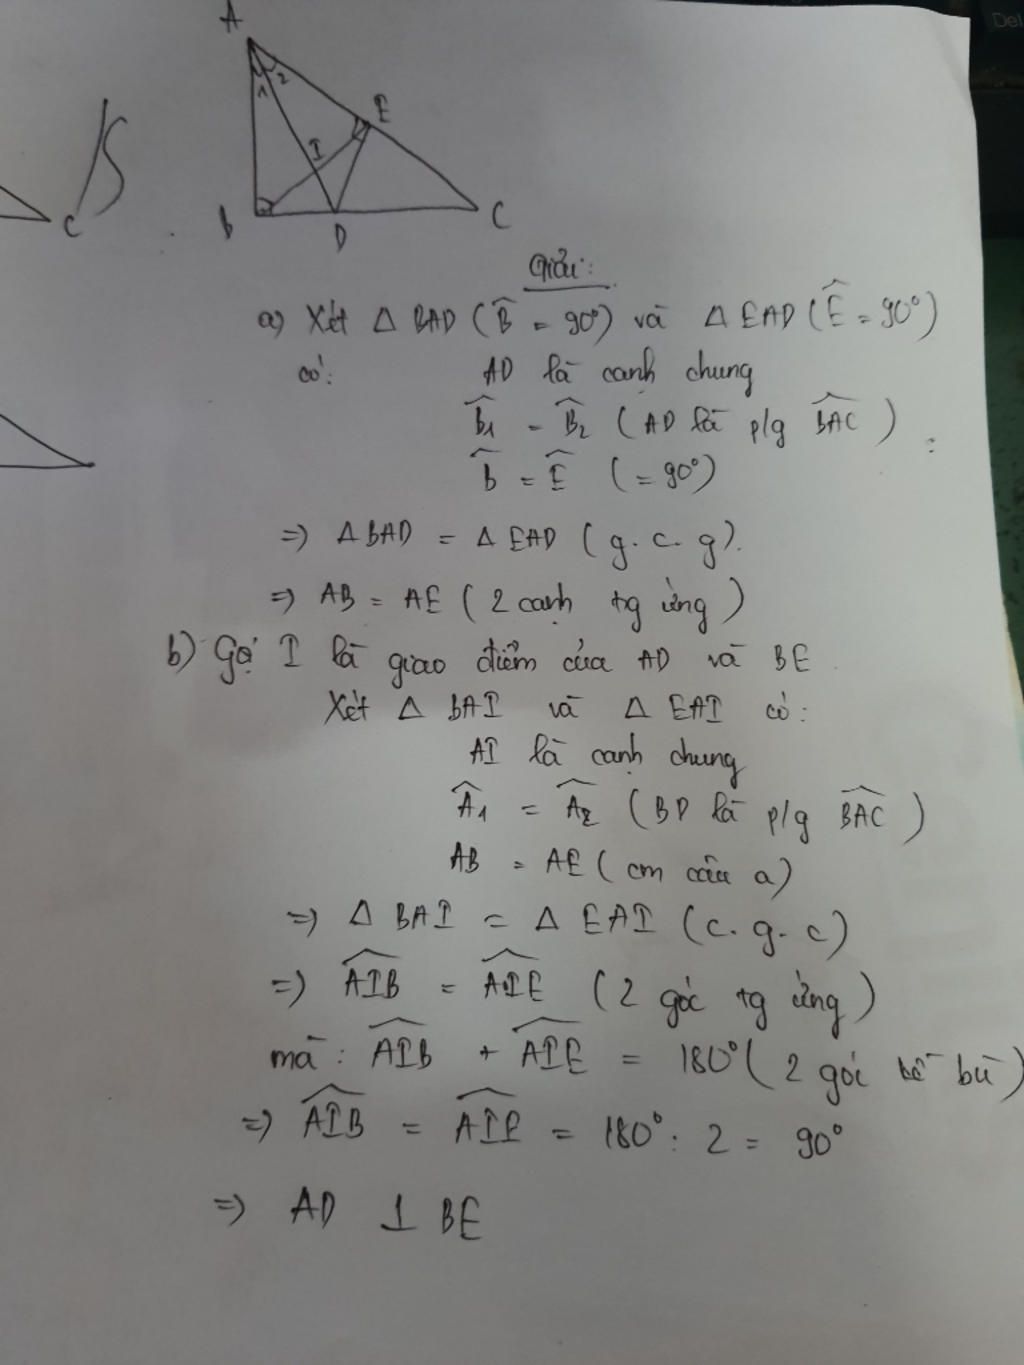 A
1 2
E
I
B
D
C
C
Del
Giải:
a) Xét Δ BAD (B̂ = 90°) và Δ EAD (Ê = 90°)
có: AD là cạnh chung
B̂₁ = B̂₂ (AD là p/g BAC̑)
b̂ = Ê (= 90°)
=> Δ BAD = Δ EAD (g.c.g).
=> AB = AE (2 cạnh tg ứng)
b) Gọi I là giao điểm của AD và BE
Xét Δ BAI và Δ EAI có:
AI là cạnh chung
Â₁ = Â₂ (BD là p/g BAC̑)
AB = AE (cm câu a)
=> Δ BAI = Δ EAI (c.g.c)
=> AIB̑ = AIȆ (2 góc tg ứng)
mà: AIB̑ + AIȆ = 180° (2 góc kề bù)
=> AIB̑ = AIȆ = 180° : 2 = 90°
=> AD ⊥ BE